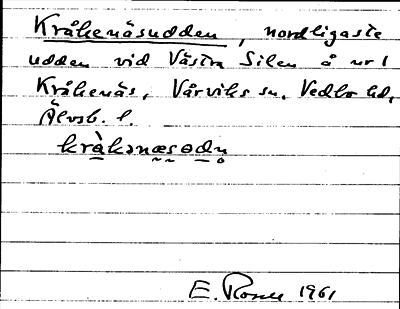 Kråkenäsudden, nordligaste
udden vid Västra Silen å nr 1
Kråkenäs, Vårviks sn, Vedbo hd,
Älvsb. l.
kràkənæsɵdn̥
E. Rosell 1961